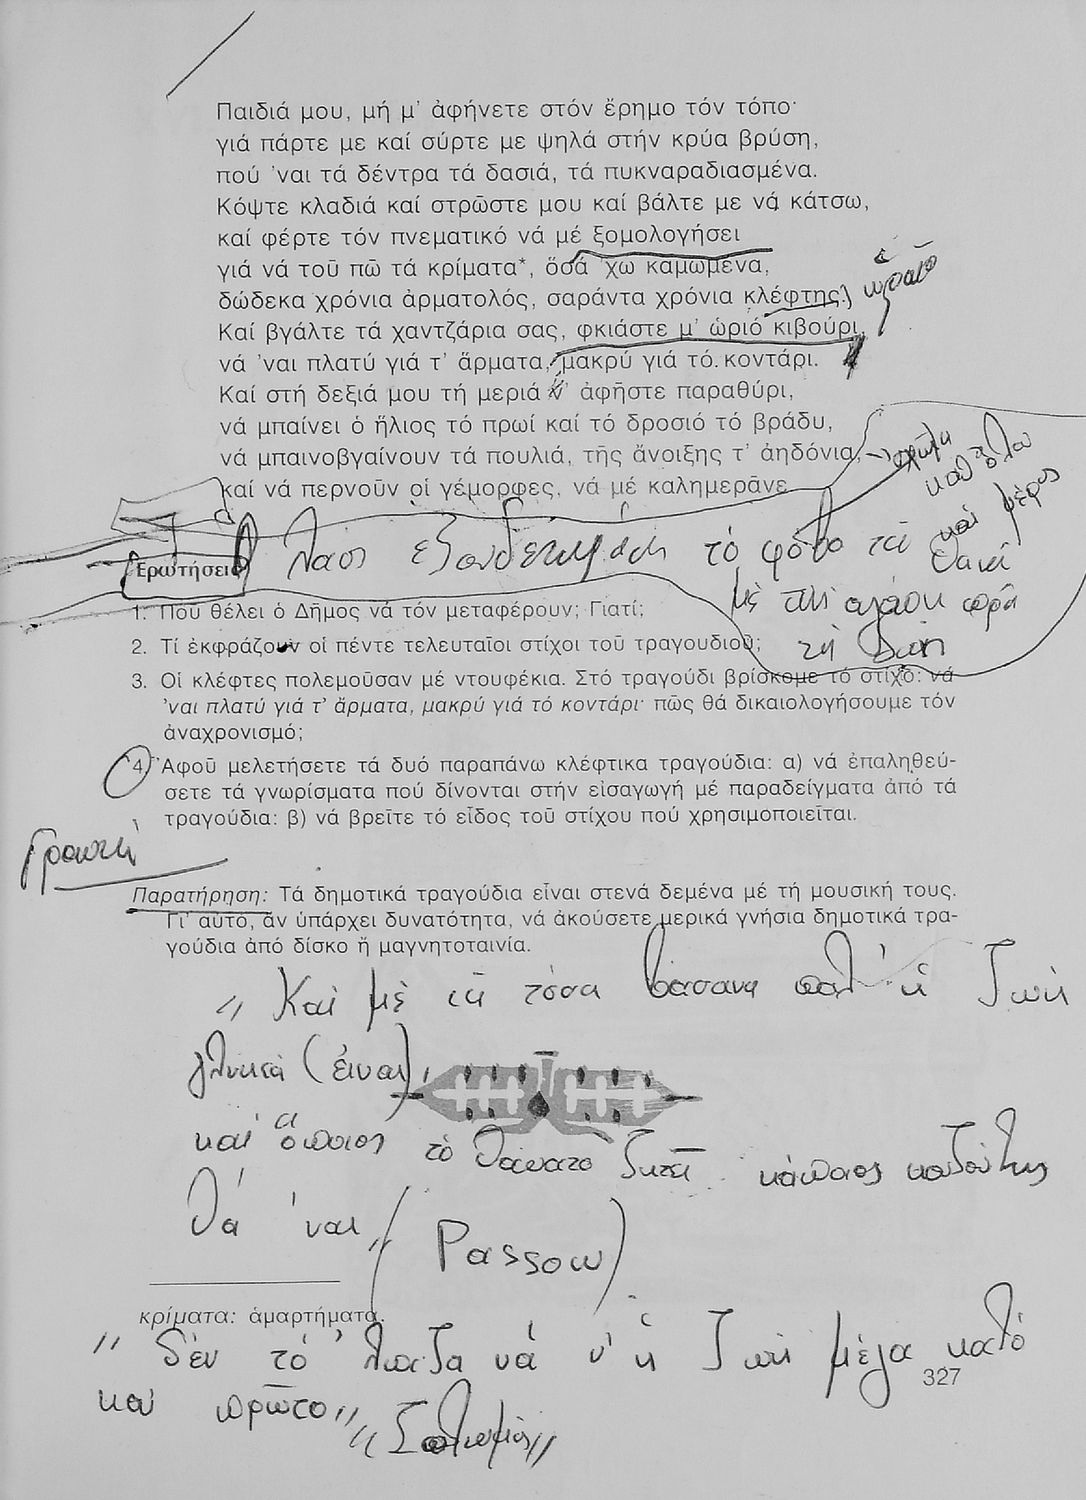 Παιδιά μου, μή μ' ἀφήνετε στόν ἔρημο τόν τόπο·
γιά πάρτε με καί σύρτε με ψηλά στήν κρύα βρύση,
πού 'ναι τά δέντρα τά δασιά, τά πυκναραδιασμένα.
Κόψτε κλαδιά καί στρῶστε μου καί βάλτε με νά κάτσω,
καί φέρτε τόν πνεματικό νά μέ ξομολογήσει
γιά νά τοῦ πῶ τά κρίματα*, ὅσα 'χω καμωμένα,
δώδεκα χρόνια ἀρματολός, σαράντα χρόνια κλέφτης.
ὡραῖο
Καί βγάλτε τά χαντζάρια σας, φκιάστε μ' ὡριό κιβούρι,
νά 'ναι πλατύ γιά τ' ἄρματα, μακρύ γιά τό κοντάρι.
Καί στή δεξιά μου τή μεριά ν' ἀφῆστε παραθύρι,
νά μπαίνει ὁ ἥλιος τό πρωί καί τό δροσιό τό βράδυ,
νά μπαινοβγαίνουν τά πουλιά, τῆς ἄνοιξης τ' ἀηδόνια,
σχῆμα
καθ' ὅλον
καί μέρος
καί νά περνοῦν οἱ γέμορφες, νά μέ καλημερᾶνε
Ἐρωτήσεις
τό φόβο τοῦ
μέ τήν ἀγάπη
1. Ποῦ θέλει ὁ Δῆμος νά τόν μεταφέρουν; Γιατί;
2. Τί ἐκφράζουν οἱ πέντε τελευταῖοι στίχοι τοῦ τραγουδιοῦ;
3. Οἱ κλέφτες πολεμοῦσαν μέ ντουφέκια. Στό τραγούδι βρίσκομε τό στίχο: νά
'ναι πλατύ γιά τ' ἄρματα, μακρύ γιά τό κοντάρι· πῶς θά δικαιολογήσουμε τόν
ἀναχρονισμό;
4. Ἀφοῦ μελετήσετε τά δυό παραπάνω κλέφτικα τραγούδια: α) νά ἐπαληθεύ-
σετε τά γνωρίσματα πού δίνονται στήν εἰσαγωγή μέ παραδείγματα ἀπό τά
τραγούδια: β) νά βρεῖτε τό εἶδος τοῦ στίχου πού χρησιμοποιεῖται.
Γραπτή
Παρατήρηση: Τά δημοτικά τραγούδια εἶναι στενά δεμένα μέ τή μουσική τους.
Γι' αὐτό, ἄν ὑπάρχει δυνατότητα, νά ἀκούσετε μερικά γνήσια δημοτικά τρα-
γούδια ἀπό δίσκο ἤ μαγνητοταινία.
"Καί μέ τά τόσα βάσανα πάλ' ἡ ζωή
γλυκειά (εἶναι),
καί ὅποιος τό θάνατο ζητᾶ κάποιος κουζούλης
θά 'ναι" (Passow)
κρίματα: ἁμαρτήματα.
"δέν τό 'λπιζα νά ν' ἡ ζωή μέγα καλό
327
καί πρῶτο" "Σολωμός"